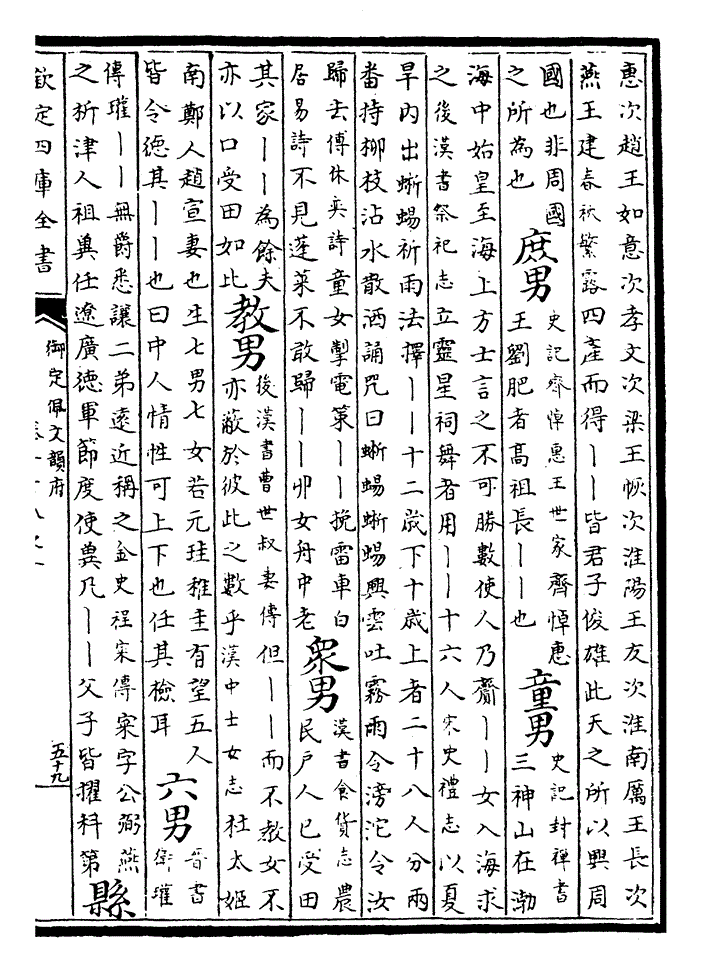 惠次趙王如意次孝文次梁王恢次淮陽王友次淮南厲王長次
燕王建春秋繁露四產而得丨丨皆君子俊雄此天之所以興周
國也非周國
之所為也
庶男
史記齊悼惠王世家齊悼惠
王劉肥者髙祖長丨丨也
童男
史記封禪書
三神山在渤
海中始皇至海上方士言之不可勝數使人乃齎丨丨女入海求
之後漢書祭祀志立靈星祠舞者用丨丨十六人宋史禮志以夏
旱内出蜥蜴祈雨法擇丨丨十二歳下十歳上者二十八人分兩
番持柳枝沾水散洒誦咒曰蜥蜴蜥蜴興雲吐霧雨令滂沱令汝
歸去傅休奕詩童女掣電策丨丨挽雷車白
居易詩不見蓬萊不敢歸丨丨丱女舟中老
衆男
漢書食貨志農
民戶人已受田
其家丨丨為餘夫
亦以口受田如比
教男
後漢書曹世叔妻傳但丨丨而不教女不
亦蔽於彼此之數乎漢中士女志杜太姬
南鄭人趙宣妻也生七男七女若元珪稚圭有望五人
皆令德其丨丨也曰中人情性可上下也任其檢耳
六男
晉書
衛瓘
傳瓘丨丨無爵悉讓二弟逺近稱之金史程寀傳寀字公弼燕
之析津人祖兾任遼廣德軍節度使兾凡丨丨父子皆擢科第
縣
欽定四庫全書
御定佩文韻府
五十九